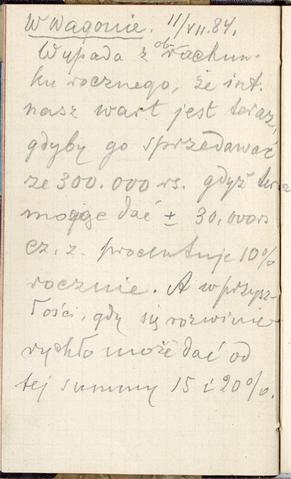 W Wagonie. 11/VII.84.
Wypada z obrachun-
ku rocznego, że int.
nasz wart jest teraz,
gdyby go sprzedawać
ze 300.000 rs. gdyż teraz
może dać ± 30,000rs
cz. z. procentuje 10%
rocznie. A w przysz-
łości, gdy się rozwinie
rychło może dać od
tej summy 15 i 20%.